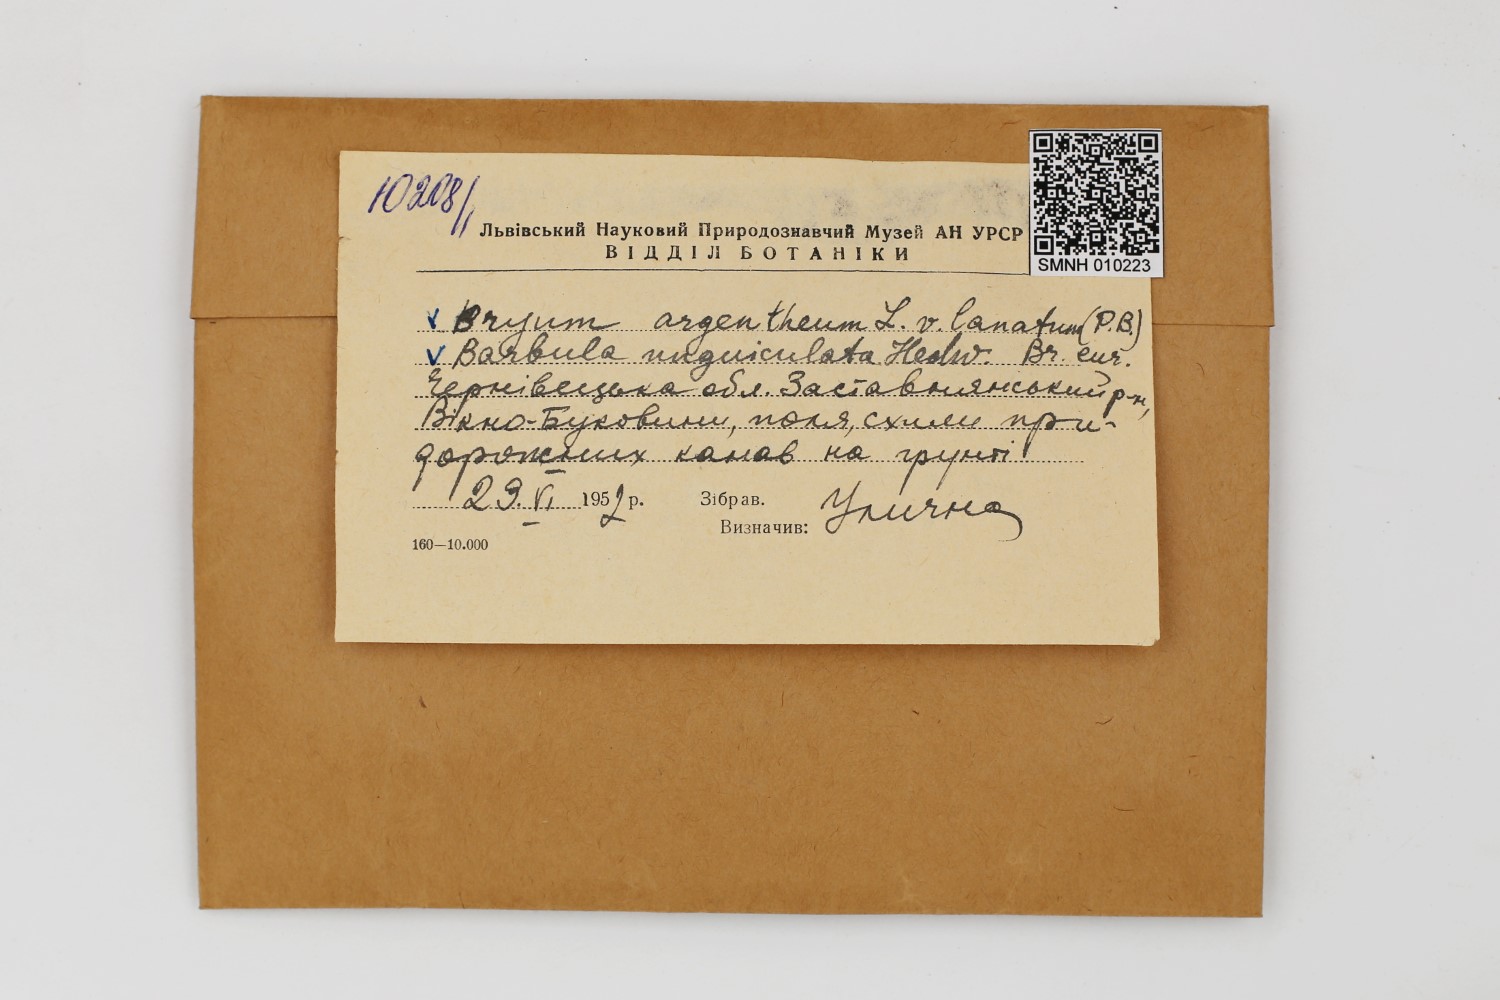 10208/1
SMNH 010223
Львівський Науковий Природознавчий Музей АН УРСР
ВІДДІЛ БОТАНІКИ
v Bryum argentheum L. v. lanatum (P.B.)
v Barbula unguiculata Hedw. Br. eur.
Чернівецька обл. Заставнянський р-н,
Вікно-Буковини, поля, схили при-
дорожних канав на грунті
29.VI 1952 р. Зібрав. Улична
Визначив:
160—10.000